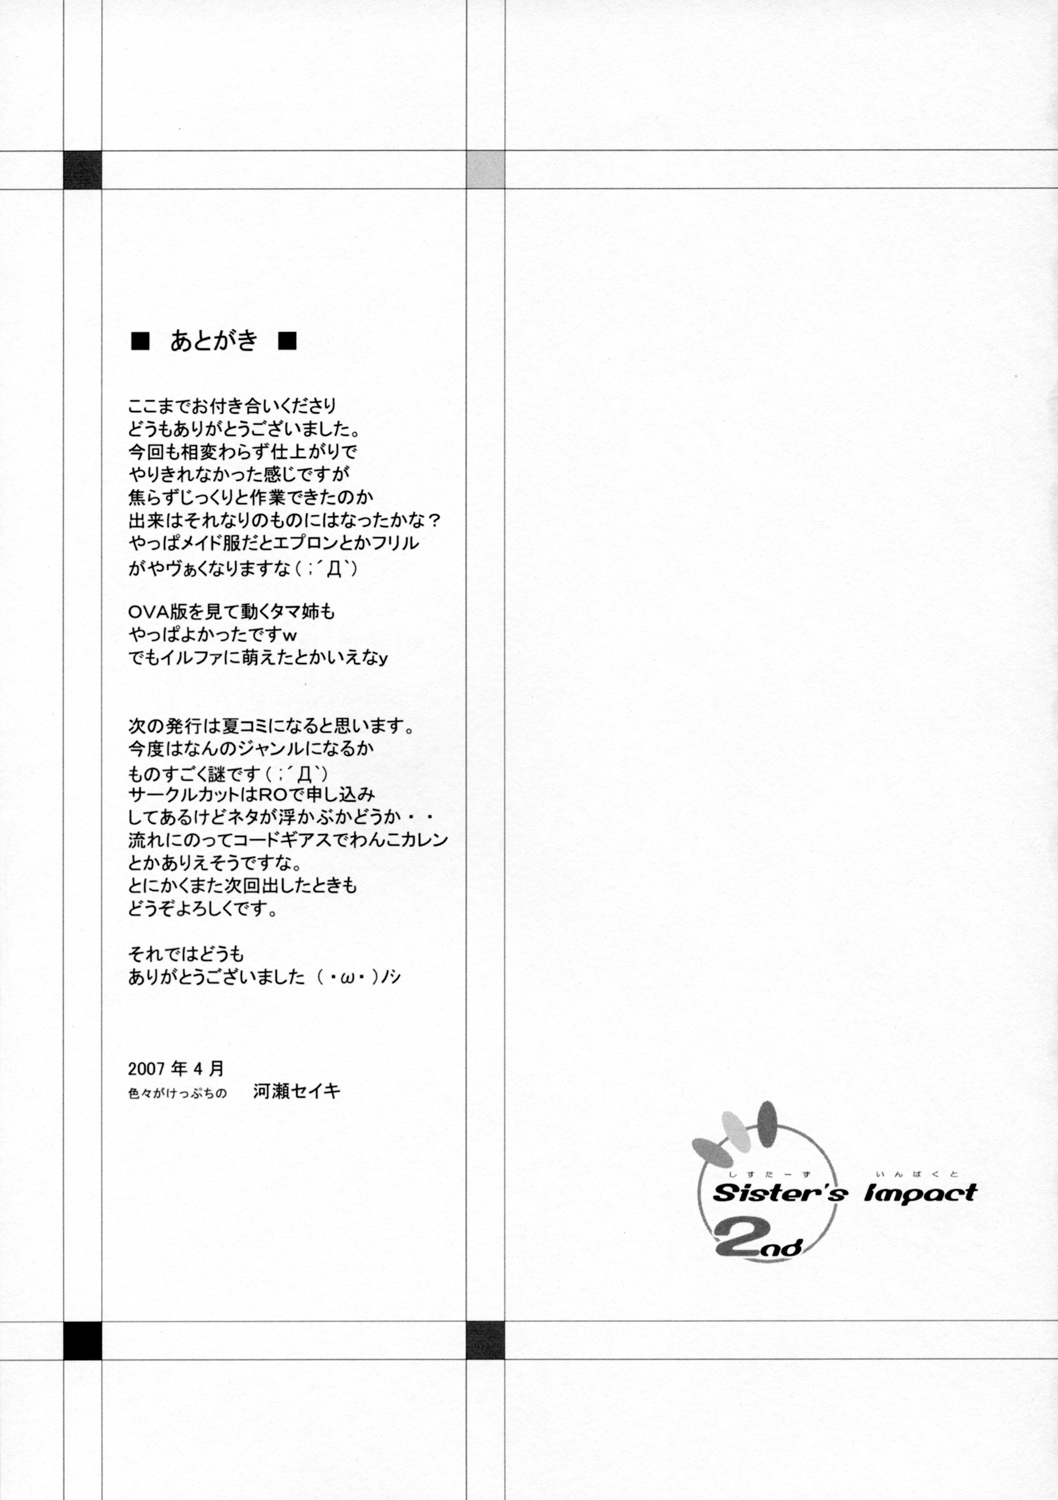 ■ あとがき ■
ここまでお付き合いくださり
どうもありがとうございました。
今回も相変わらず仕上がりで
やりきれなかった感じですが
焦らずじっくりと作業できたのか
出来はそれなりのものにはなったかな？
やっぱメイド服だとエプロンとかフリル
がやヴぁくなりますな(；´Д｀)
OVA版を見て動くタマ姉も
やっぱよかったですｗ
でもイルファに萌えたとかいえなy
次の発行は夏コミになると思います。
今度はなんのジャンルになるか
ものすごく謎です(；´Д｀)
サークルカットはROで申し込み
してあるけどネタが浮かぶかどうか・・
流れにのってコードギアスでわんこカレン
とかありえそうですな。
とにかくまた次回出したときも
どうぞよろしくです。
それではどうも
ありがとうございました （・ω・)ﾉｼ
2007 年 4 月
色々がけっぷちの 河瀬セイキ
しすたーず いんぱくと
Sister's Impact
2nd